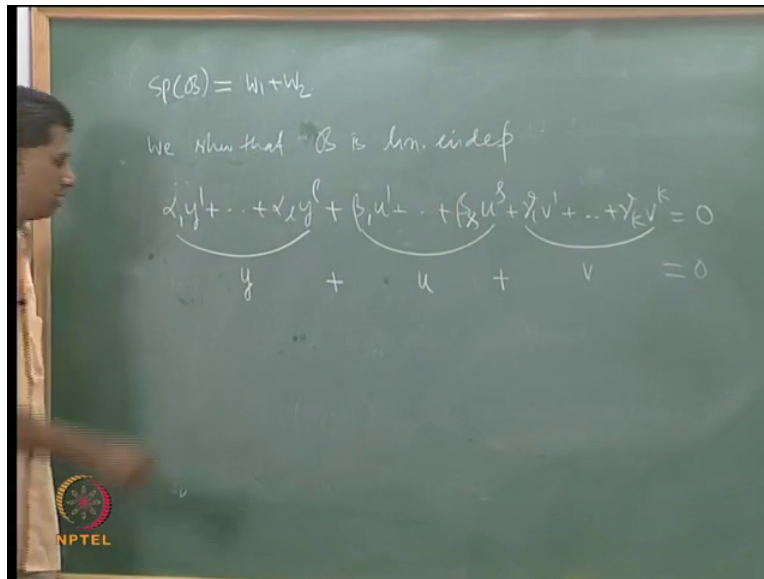 Sp(𝓑) = W₁ + W₂.
We show that 𝓑 is lin. indep
α₁y¹ + ... + α_l y^l + β₁u¹ + ... + β_s u^s + γ₁v¹ + ... + γ_k v^k = 0
y + u + v = 0
NPTEL